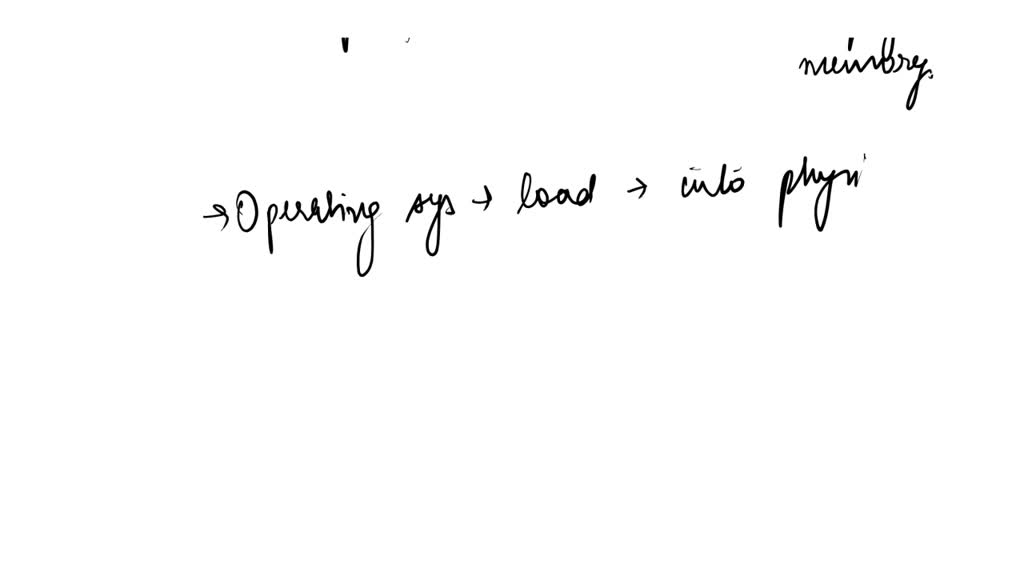 memory.
→ Operating sys → load → into physi